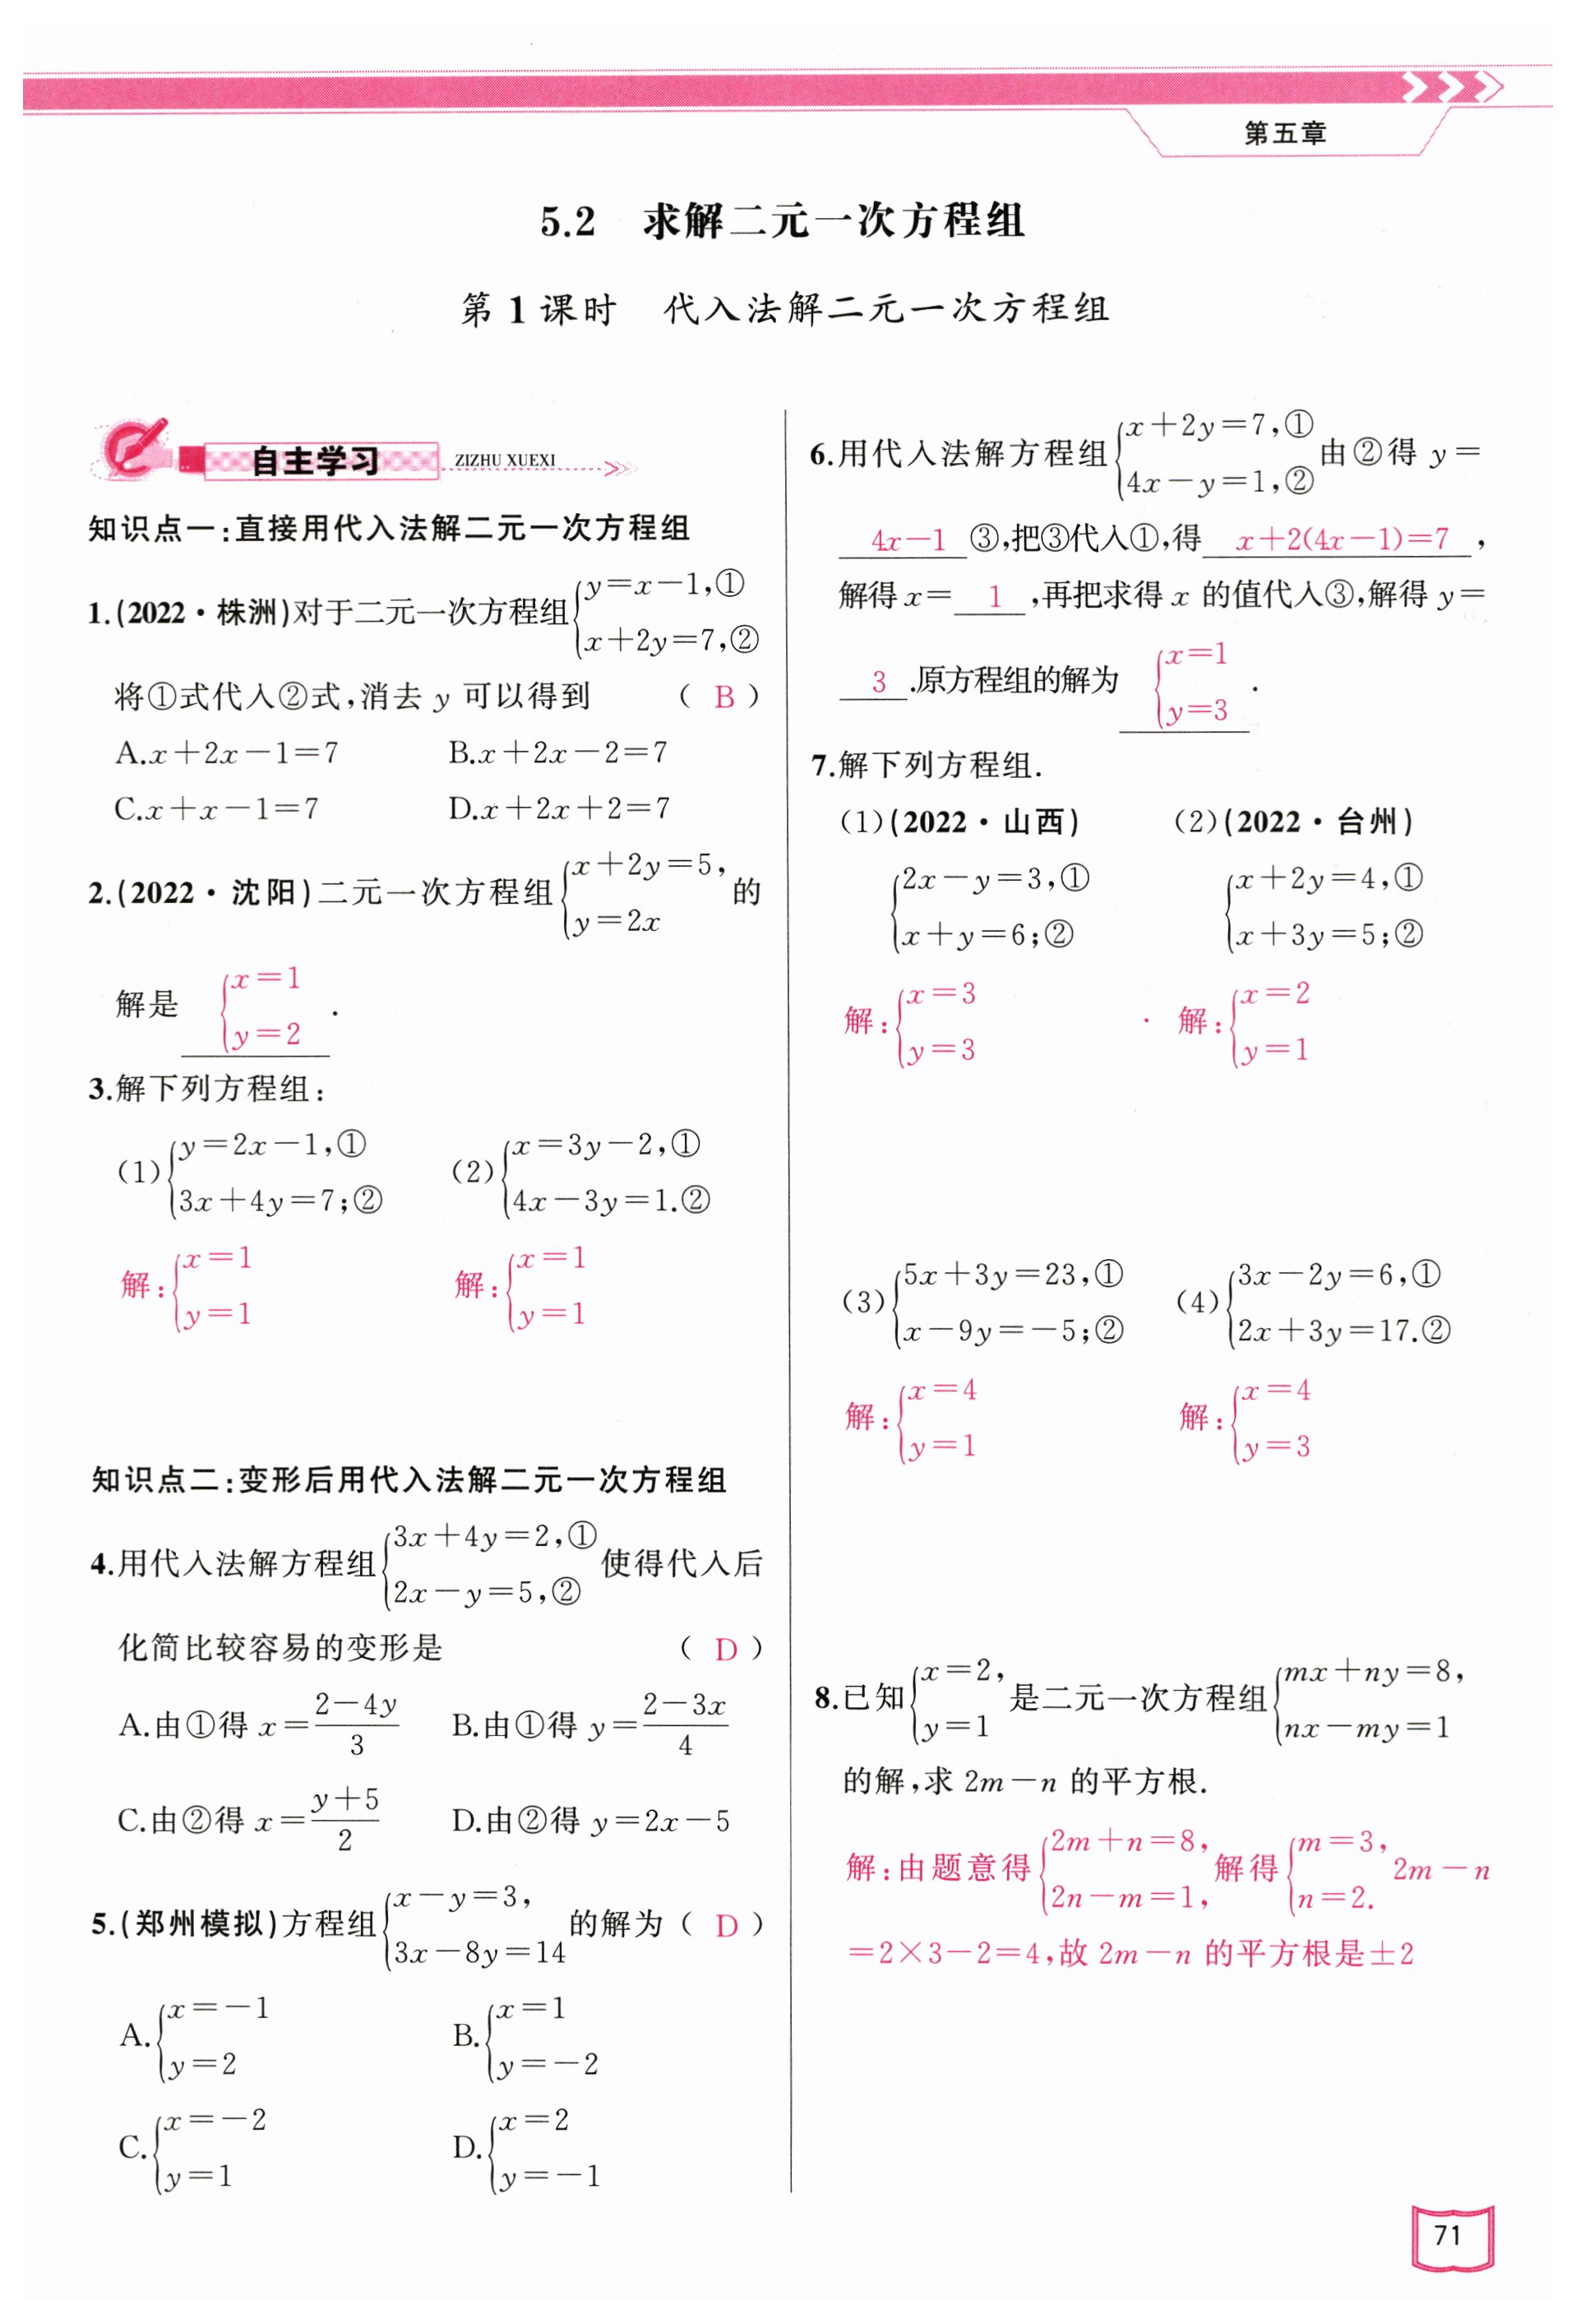 第五章
5.2 求解二元一次方程组
第1课时 代入法解二元一次方程组
自主学习 ZIZHU XUEXI
知识点一:直接用代入法解二元一次方程组
1.(2022·株洲)对于二元一次方程组{y=x-1,①
x+2y=7,②
将①式代入②式,消去 y 可以得到 ( B )
A.x+2x-1=7 B.x+2x-2=7
C.x+x-1=7 D.x+2x+2=7
2.(2022·沈阳)二元一次方程组{x+2y=5, 的
y=2x
解是 {x=1
y=2 .
3.解下列方程组:
(1){y=2x-1,① (2){x=3y-2,①
3x+4y=7;② 4x-3y=1.②
解:{x=1 解:{x=1
y=1 y=1
知识点二:变形后用代入法解二元一次方程组
4.用代入法解方程组{3x+4y=2,① 使得代入后
2x-y=5,②
化简比较容易的变形是 ( D )
A.由①得 x=\frac{2-4y}{3} B.由①得 y=\frac{2-3x}{4}
C.由②得 x=\frac{y+5}{2} D.由②得 y=2x-5
5.(郑州模拟)方程组{x-y=3, 的解为 ( D )
3x-8y=14
A.{x=-1 B.{x=1
y=2 y=-2
C.{x=-2 D.{x=2
y=1 y=-1
6.用代入法解方程组{x+2y=7,① 由②得 y=
4x-y=1,②
4x-1 ③,把③代入①,得 x+2(4x-1)=7 ,
解得 x= 1 ,再把求得 x 的值代入③,解得 y=
3 .原方程组的解为 {x=1
y=3 .
7.解下列方程组.
(1)(2022·山西) (2)(2022·台州)
{2x-y=3,① {x+2y=4,①
x+y=6;② x+3y=5;②
解:{x=3 解:{x=2
y=3 y=1
(3){5x+3y=23,① (4){3x-2y=6,①
x-9y=-5;② 2x+3y=17.②
解:{x=4 解:{x=4
y=1 y=3
8.已知{x=2, 是二元一次方程组{mx+ny=8,
y=1 nx-my=1
的解,求 2m-n 的平方根.
解:由题意得{2m+n=8, 解得{m=3, 2m-n
2n-m=1, n=2.
=2×3-2=4,故 2m-n 的平方根是±2
71